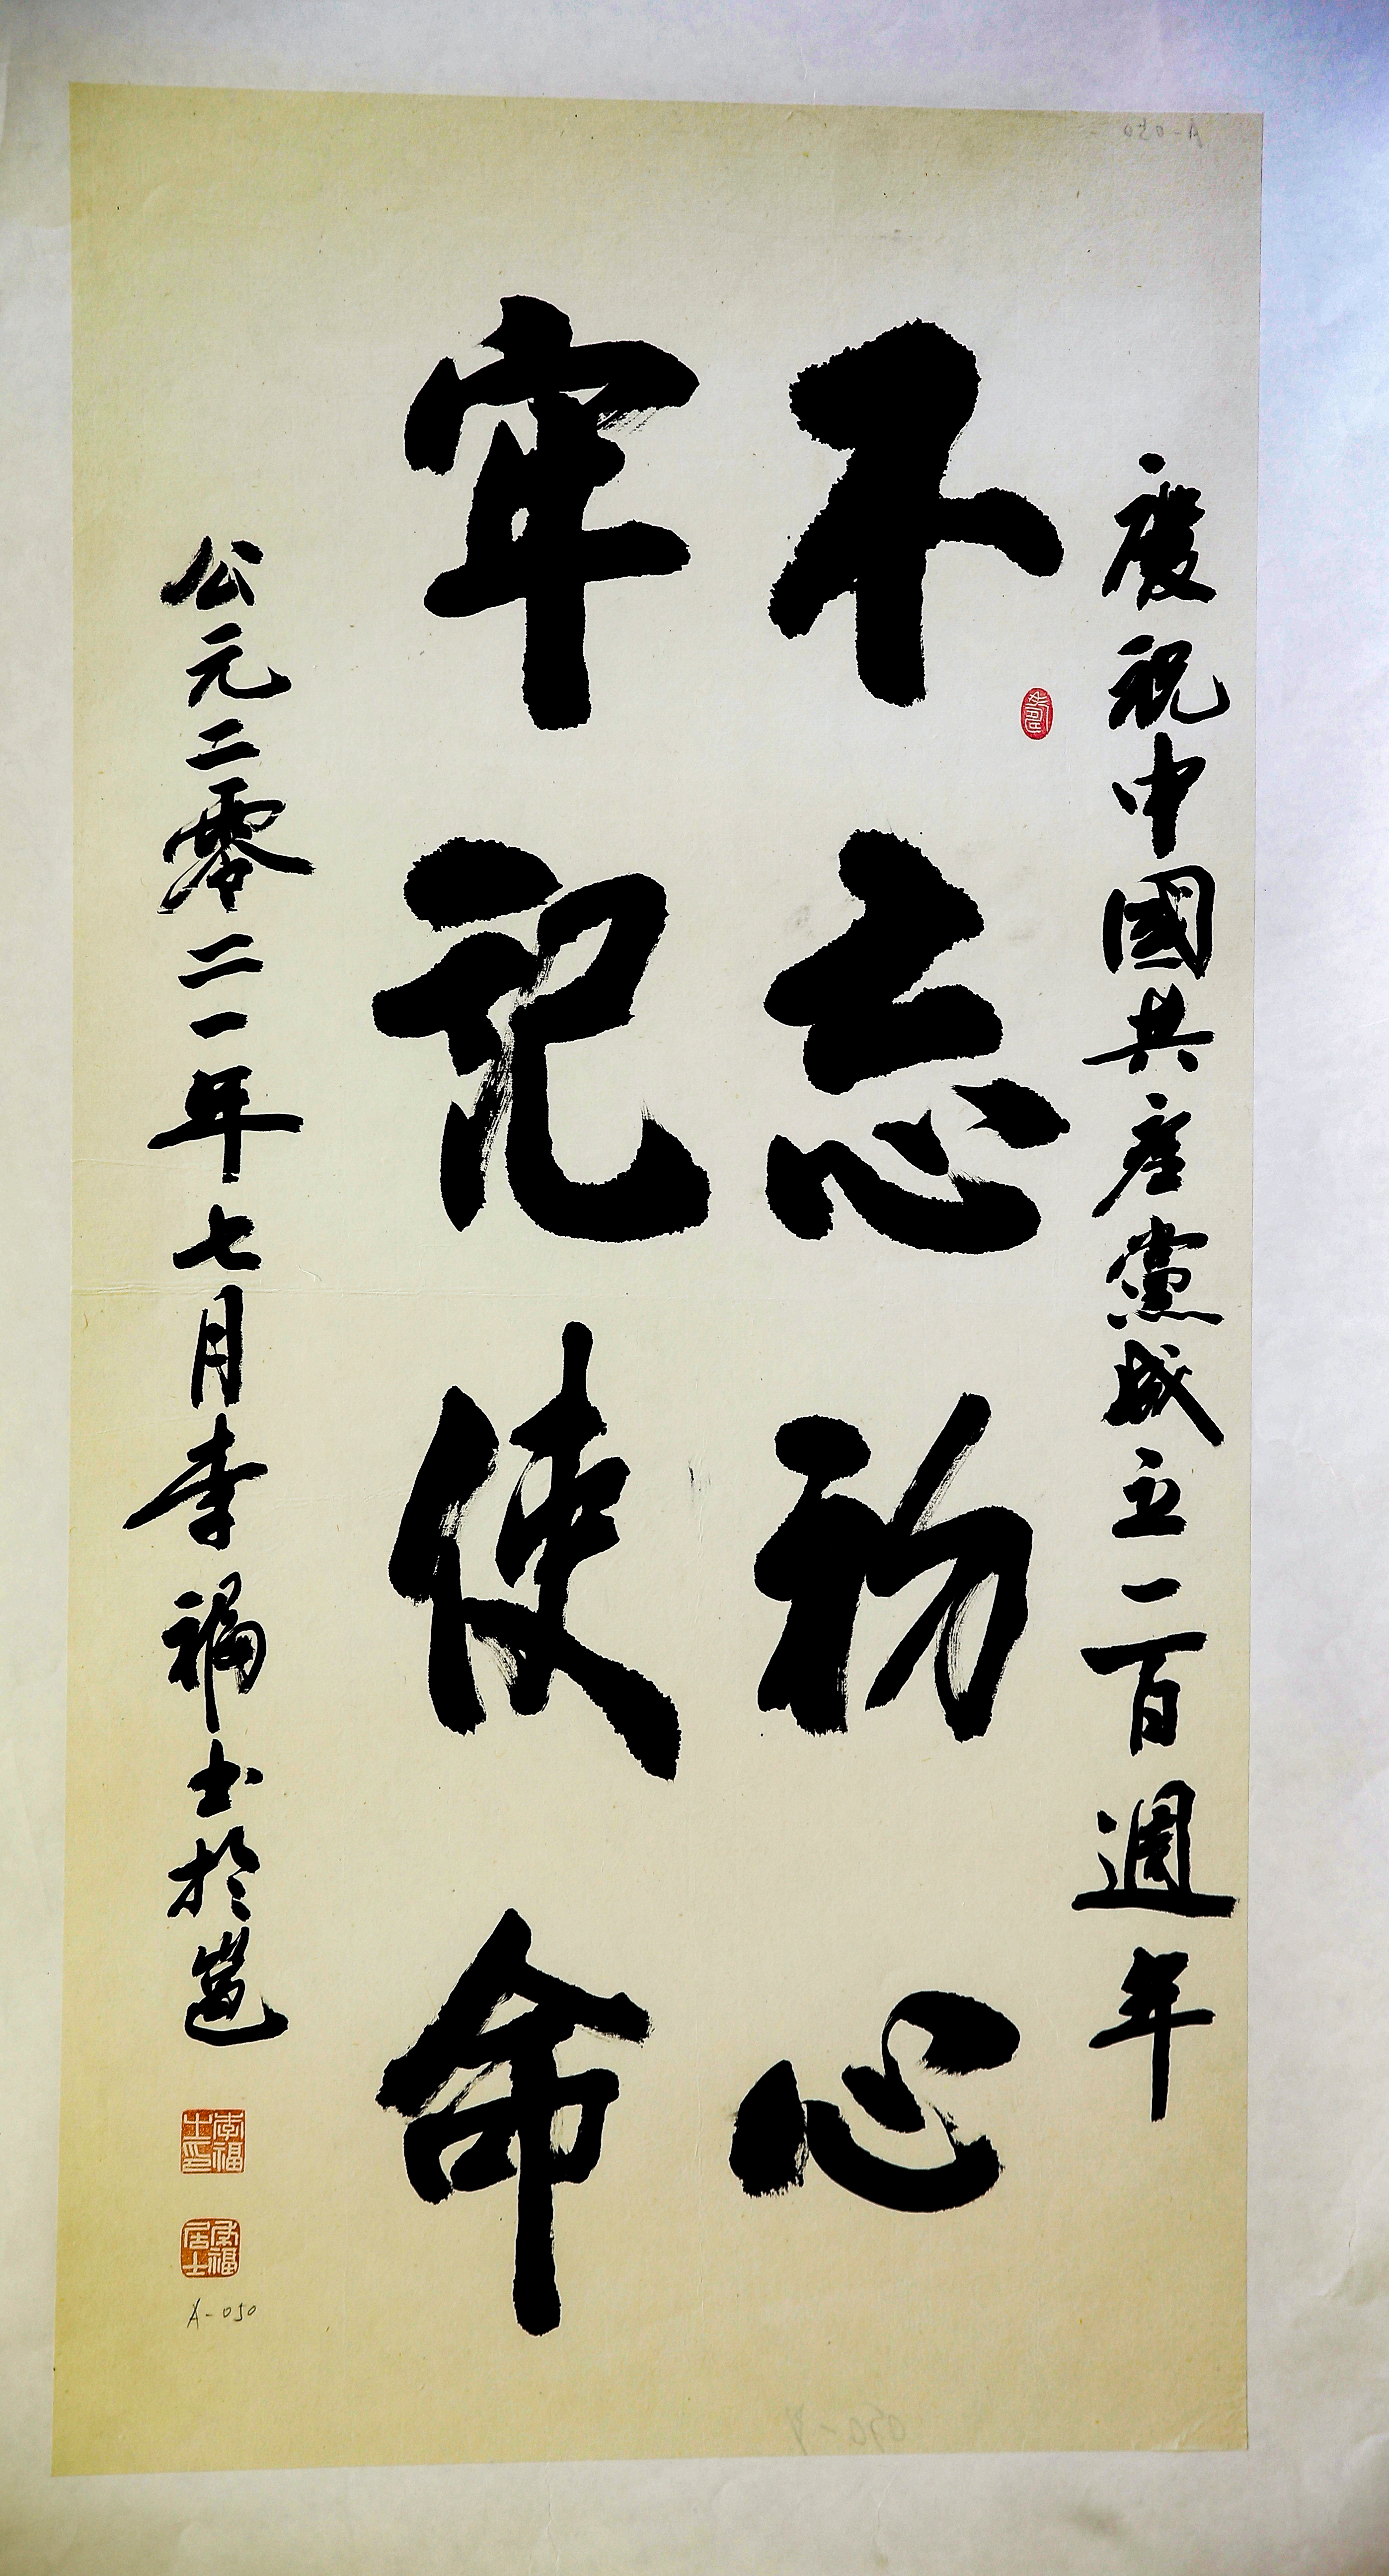 慶祝中國共產黨成立一百週年
不忘初心
牢記使命
公元二零二一年七月李福士於邕
李福士印
A-050
A-050